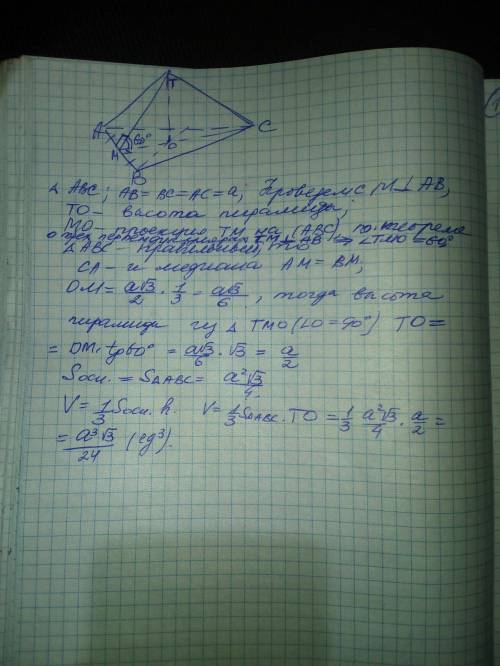 T
A
60°
O
C
M
B
△ ABC; AB = BC = AC = a; Проведем CM ⊥ AB,
TO – высота пирамиды;
MO – проекция TM на (ABC), по теореме
о трех перпендикулярах TM ⊥ AB ⇒ ∠TMO = 60°
△ ABC – правильный, то
CM – и медиана AM = BM,
OM = a√3/2 · 1/3 = a√3/6, тогда высота
пирамиды из △ TMO (∠O = 90°) TO =
= OM · tg60° = a√3/6 · √3 = a/2
Sосн. = S△ABC = a²√3/4.
V = 1/3 Sосн. h. V = 1/3 S△ABC · TO = 1/3 a²√3/4 · a/2 =
= a³√3/24 (ед³).